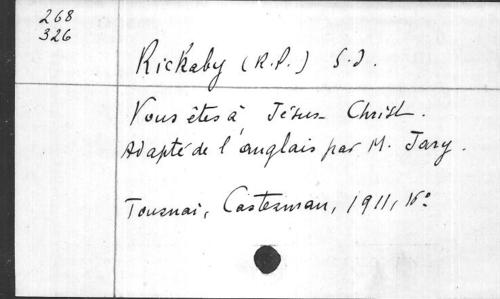 268
326
Rickaby (R.P.) S.J.
Vous êtes à Jésus-Christ.
Adapté de l'anglais par M. Jary.
Tournai, Casterman, 1911,